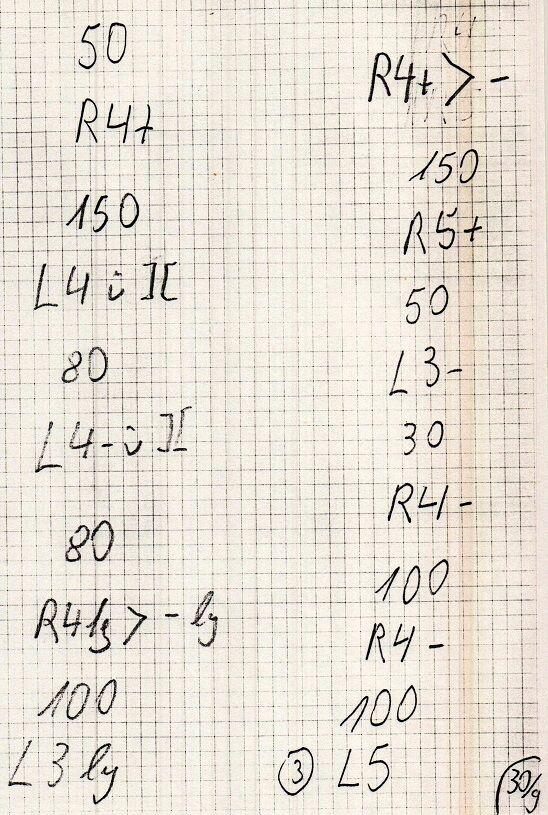 50
R4+
150
L4 ü ][
80
L4- ü ][
80
R4lg > - lg
100
L3 lg
R4+ > -
150
R5+
50
L3-
30
R4-
100
R4-
100
3 L5
30/9